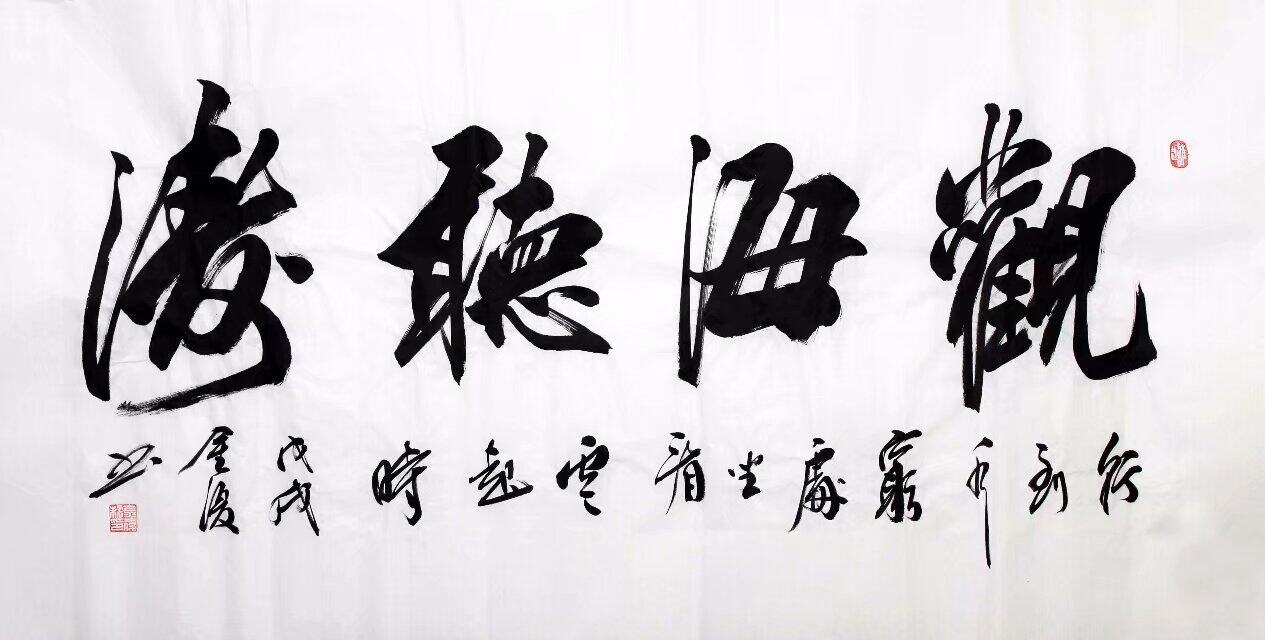 觀海聽濤
行到水窮處坐看雲起時
戊戌